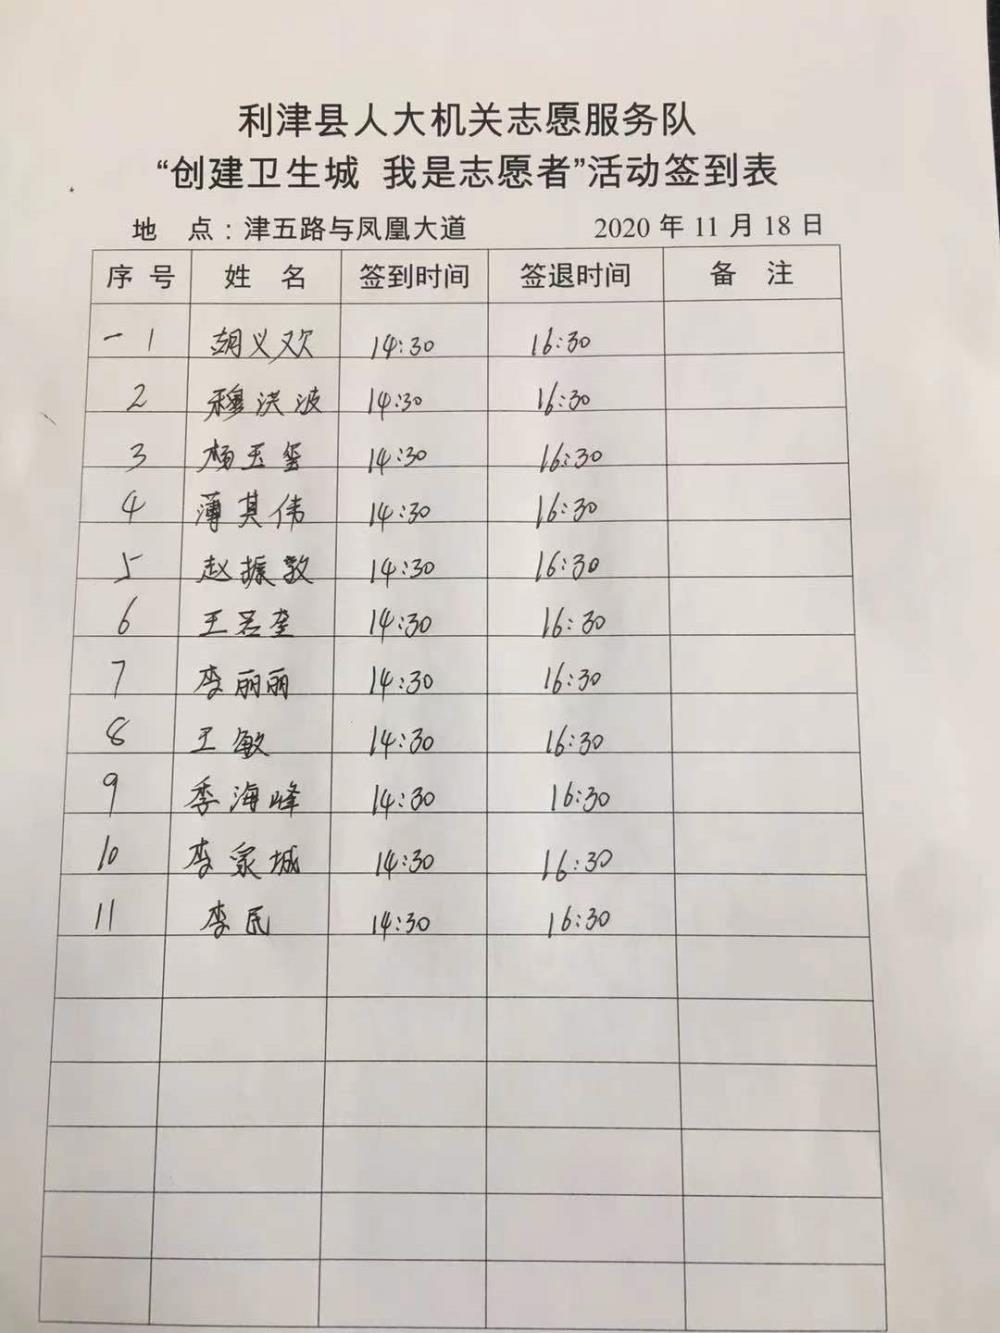 利津县人大机关志愿服务队
“创建卫生城 我是志愿者”活动签到表
地 点：津五路与凤凰大道 2020 年 11 月 18 日
序 号 姓 名 签到时间 签退时间 备 注
一 1 胡义欢 14:30 16:30
2 穆洪波 14:30 16:30
3 杨玉玺 14:30 16:30
4 薄其伟 14:30 16:30
5 赵振敦 14:30 16:30
6 王若奎 14:30 16:30
7 李丽丽 14:30 16:30
8 王敏 14:30 16:30
9 季海峰 14:30 16:30
10 李家城 14:30 16:30
11 李民 14:30 16:30